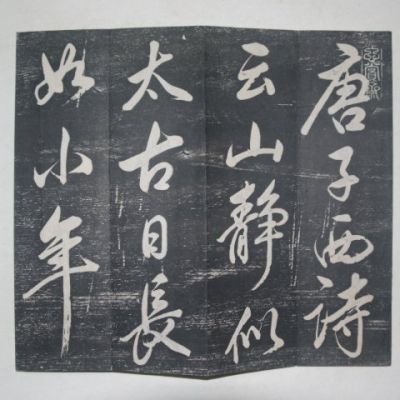 唐子西詩
云山静似
太古日長
如小年